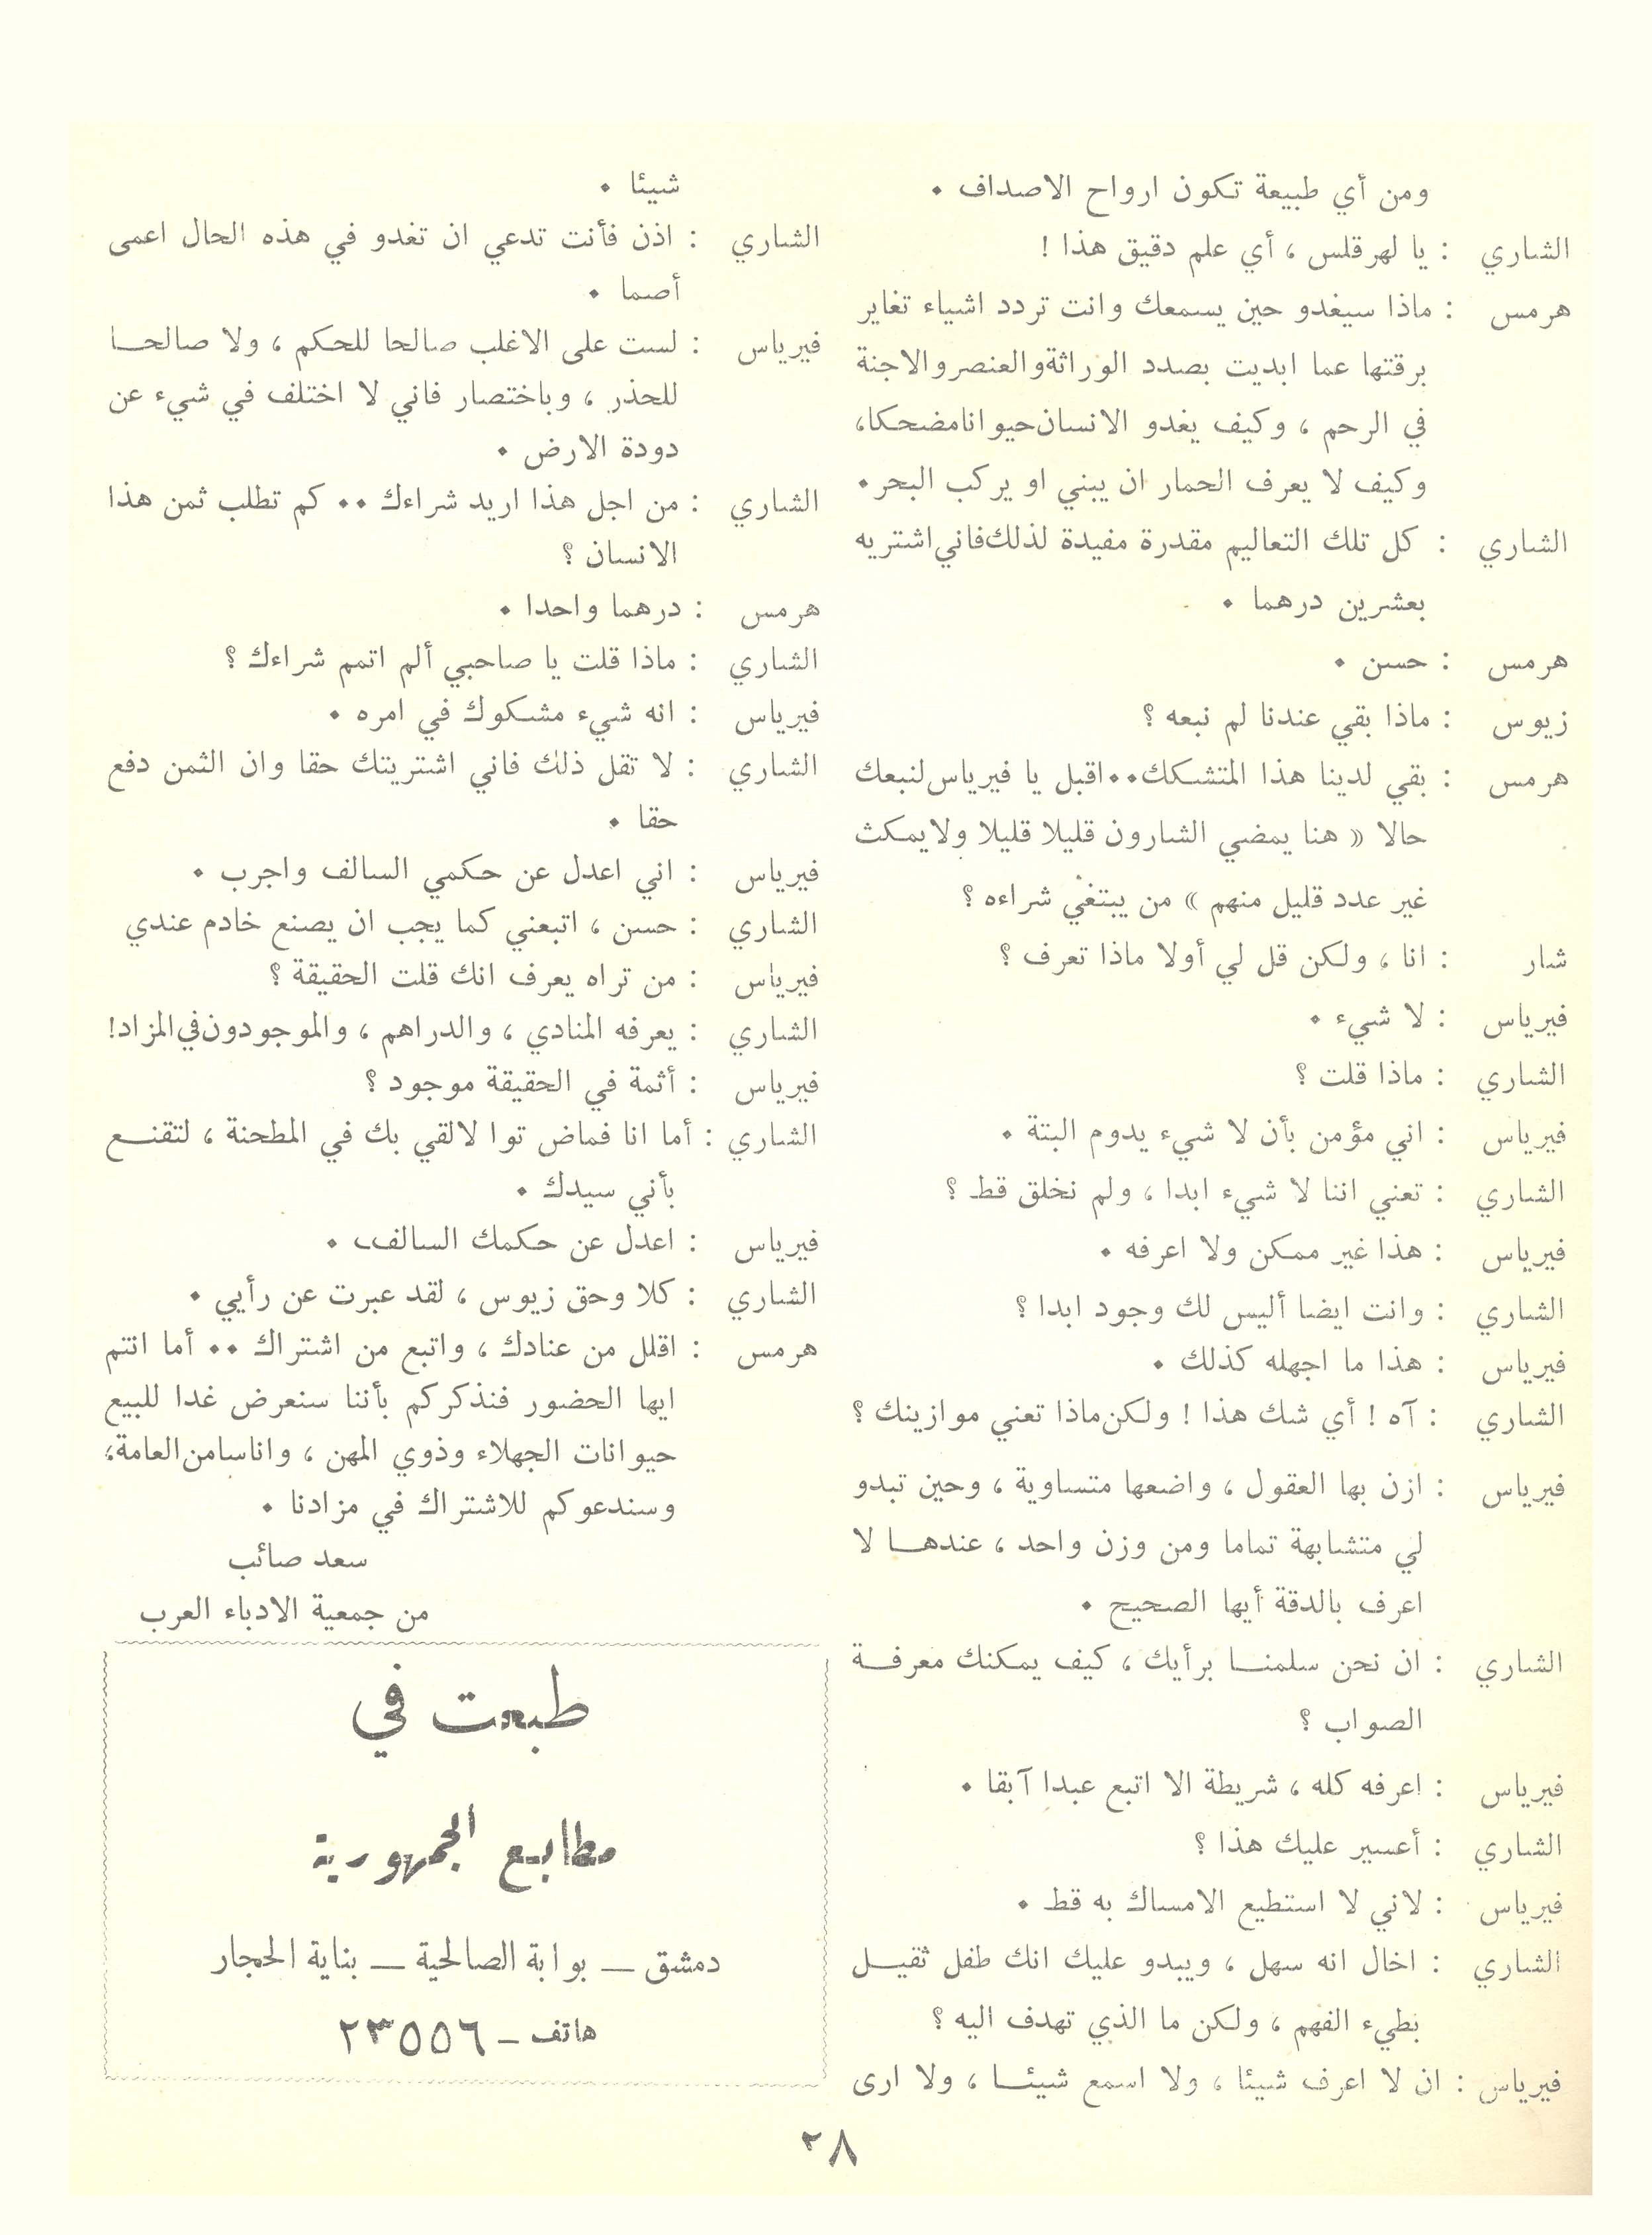 ومن أي طبيعة تكون ارواح الاصداف .
الشاري : يا لهرقلس ، أي علم دقيق هذا !
هرمس : ماذا سيغدو حين يسمعك وانت تردد اشياء تغاير
برقتها عما ابديت بصدد الوراثة والعنصر والاجنة
في الرحم ، وكيف يغدو الانسان حيوانا مضحكا،
وكيف لا يعرف الحمار ان يبني او يركب البحر .
الشاري : كل تلك التعاليم مقدرة مفيدة لذلك فاني اشتريه
بعشرين درهما .
هرمس : حسن .
زيوس : ماذا بقي عندنا لم نبعه ؟
هرمس : بقي لدينا هذا المتشكك .. اقبل يا فيرياس لنبعك
حالا « هنا يمضي الشارون قليلا قليلا ولا يمكث
غير عدد قليل منهم » من يبتغي شراءه ؟
شار : انا ، ولكن قل لي أولا ماذا تعرف ؟
فيرياس : لا شيء .
الشاري : ماذا قلت ؟
فيرياس : اني مؤمن بأن لا شيء يدوم البتة .
الشاري : تعني اننا لا شيء ابدا ، ولم نخلق قط ؟
فيرياس : هذا غير ممكن ولا اعرفه .
الشاري : وانت ايضا أليس لك وجود ابدا ؟
فيرياس : هذا ما اجهله كذلك .
الشاري : آه ! أي شك هذا ! ولكن ماذا تعني موازينك ؟
فيرياس : ازن بها العقول ، واضعها متساوية ، وحين تبدو
لي متشابهة تماما ومن وزن واحد ، عندها لا
اعرف بالدقة أيها الصحيح .
الشاري : ان نحن سلمنا برأيك ، كيف يمكنك معرفة
الصواب ؟
فيرياس : اعرفه كله ، شريطة الا اتبع عبدا آبقا .
الشاري : أعسير عليك هذا ؟
فيرياس : لاني لا استطيع الامساك به قط .
الشاري : اخال انه سهل ، ويبدو عليك انك طفل ثقيل
بطيء الفهم ، ولكن ما الذي تهدف اليه ؟
فيرياس : ان لا اعرف شيئا ، ولا اسمع شيئا ، ولا ارى
شيئا .
الشاري : اذن فأنت تدعي ان تغدو في هذه الحال اعمى
أصما .
فيرياس : لست على الاغلب صالحا للحكم ، ولا صالحا
للحذر ، وباختصار فاني لا اختلف في شيء عن
دودة الارض .
الشاري : من اجل هذا اريد شراءك .. كم تطلب ثمن هذا
الانسان ؟
هرمس : درهما واحدا .
الشاري : ماذا قلت يا صاحبي ألم اتمم شراءك ؟
فيرياس : انه شيء مشكوك في امره .
الشاري : لا تقل ذلك فاني اشتريتك حقا وان الثمن دفع
حقا .
فيرياس : اني اعدل عن حكمي السالف واجرب .
الشاري : حسن ، اتبعني كما يجب ان يصنع خادم عندي
فيرياس : من تراه يعرف انك قلت الحقيقة ؟
الشاري : يعرفه المنادي ، والدراهم ، والموجودون في المزاد!
فيرياس : أثمة في الحقيقة موجود ؟
الشاري : أما انا فماض توا لالقي بك في المطحنة ، لتقنع
بأني سيدك .
فيرياس : اعدل عن حكمك السالف .
الشاري : كلا وحق زيوس ، لقد عبرت عن رأيي .
هرمس : اقلل من عنادك ، واتبع من اشتراك .. أما انتم
ايها الحضور فنذكركم بأننا سنعرض غدا للبيع
حيوانات الجهلاء وذوي المهن ، واناسا من العامة؛
وسندعوكم للاشتراك في مزادنا .
سعد صائب
من جمعية الادباء العرب
طبعت في
مطابع الجمهورية
دمشق ـ بوابة الصالحية ـ بناية الحجار
هاتف ـ ٢٣٥٥٦
٢٨